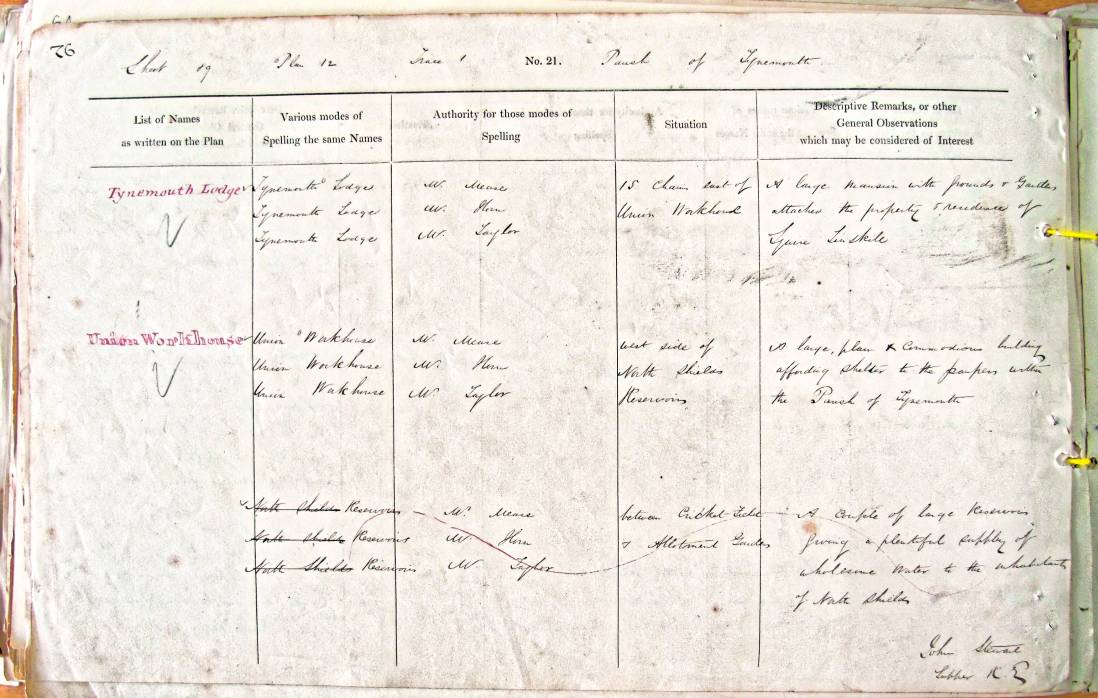 76
Sheet 89 Plan 12 Trace 1 No. 21. Parish of Tynemouth
List of Names as written on the Plan
Various modes of Spelling the same Names
Authority for those modes of Spelling
Situation
Descriptive Remarks, or other General Observations which may be considered of Interest
Tynemouth Lodge Tynemouth Lodge Mr. Mease 15 Chains east of A large Mansion with grounds & Garden
Tynemouth Lodge Mr. Horn Union Workhouse attached the property & residence of
Tynemouth Lodge Mr. Taylor Squire Linskill
Union Workhouse Union Workhouse Mr. Mease west side of A large, plain & Commodious building
Union Workhouse Mr. Horn North Shields affording shelter to the paupers within
Union Workhouse Mr. Taylor Reservoirs the Parish of Tynemouth
North Shields Reservoirs Mr. Mease between Cricket Field A Couple of large Reservoirs
North Shields Reservoirs Mr. Horn & Allotment Gardens giving a plentiful supply of
North Shields Reservoirs Mr. Taylor wholesome Water to the inhabitants
of North Shields
John Stewart
R. E